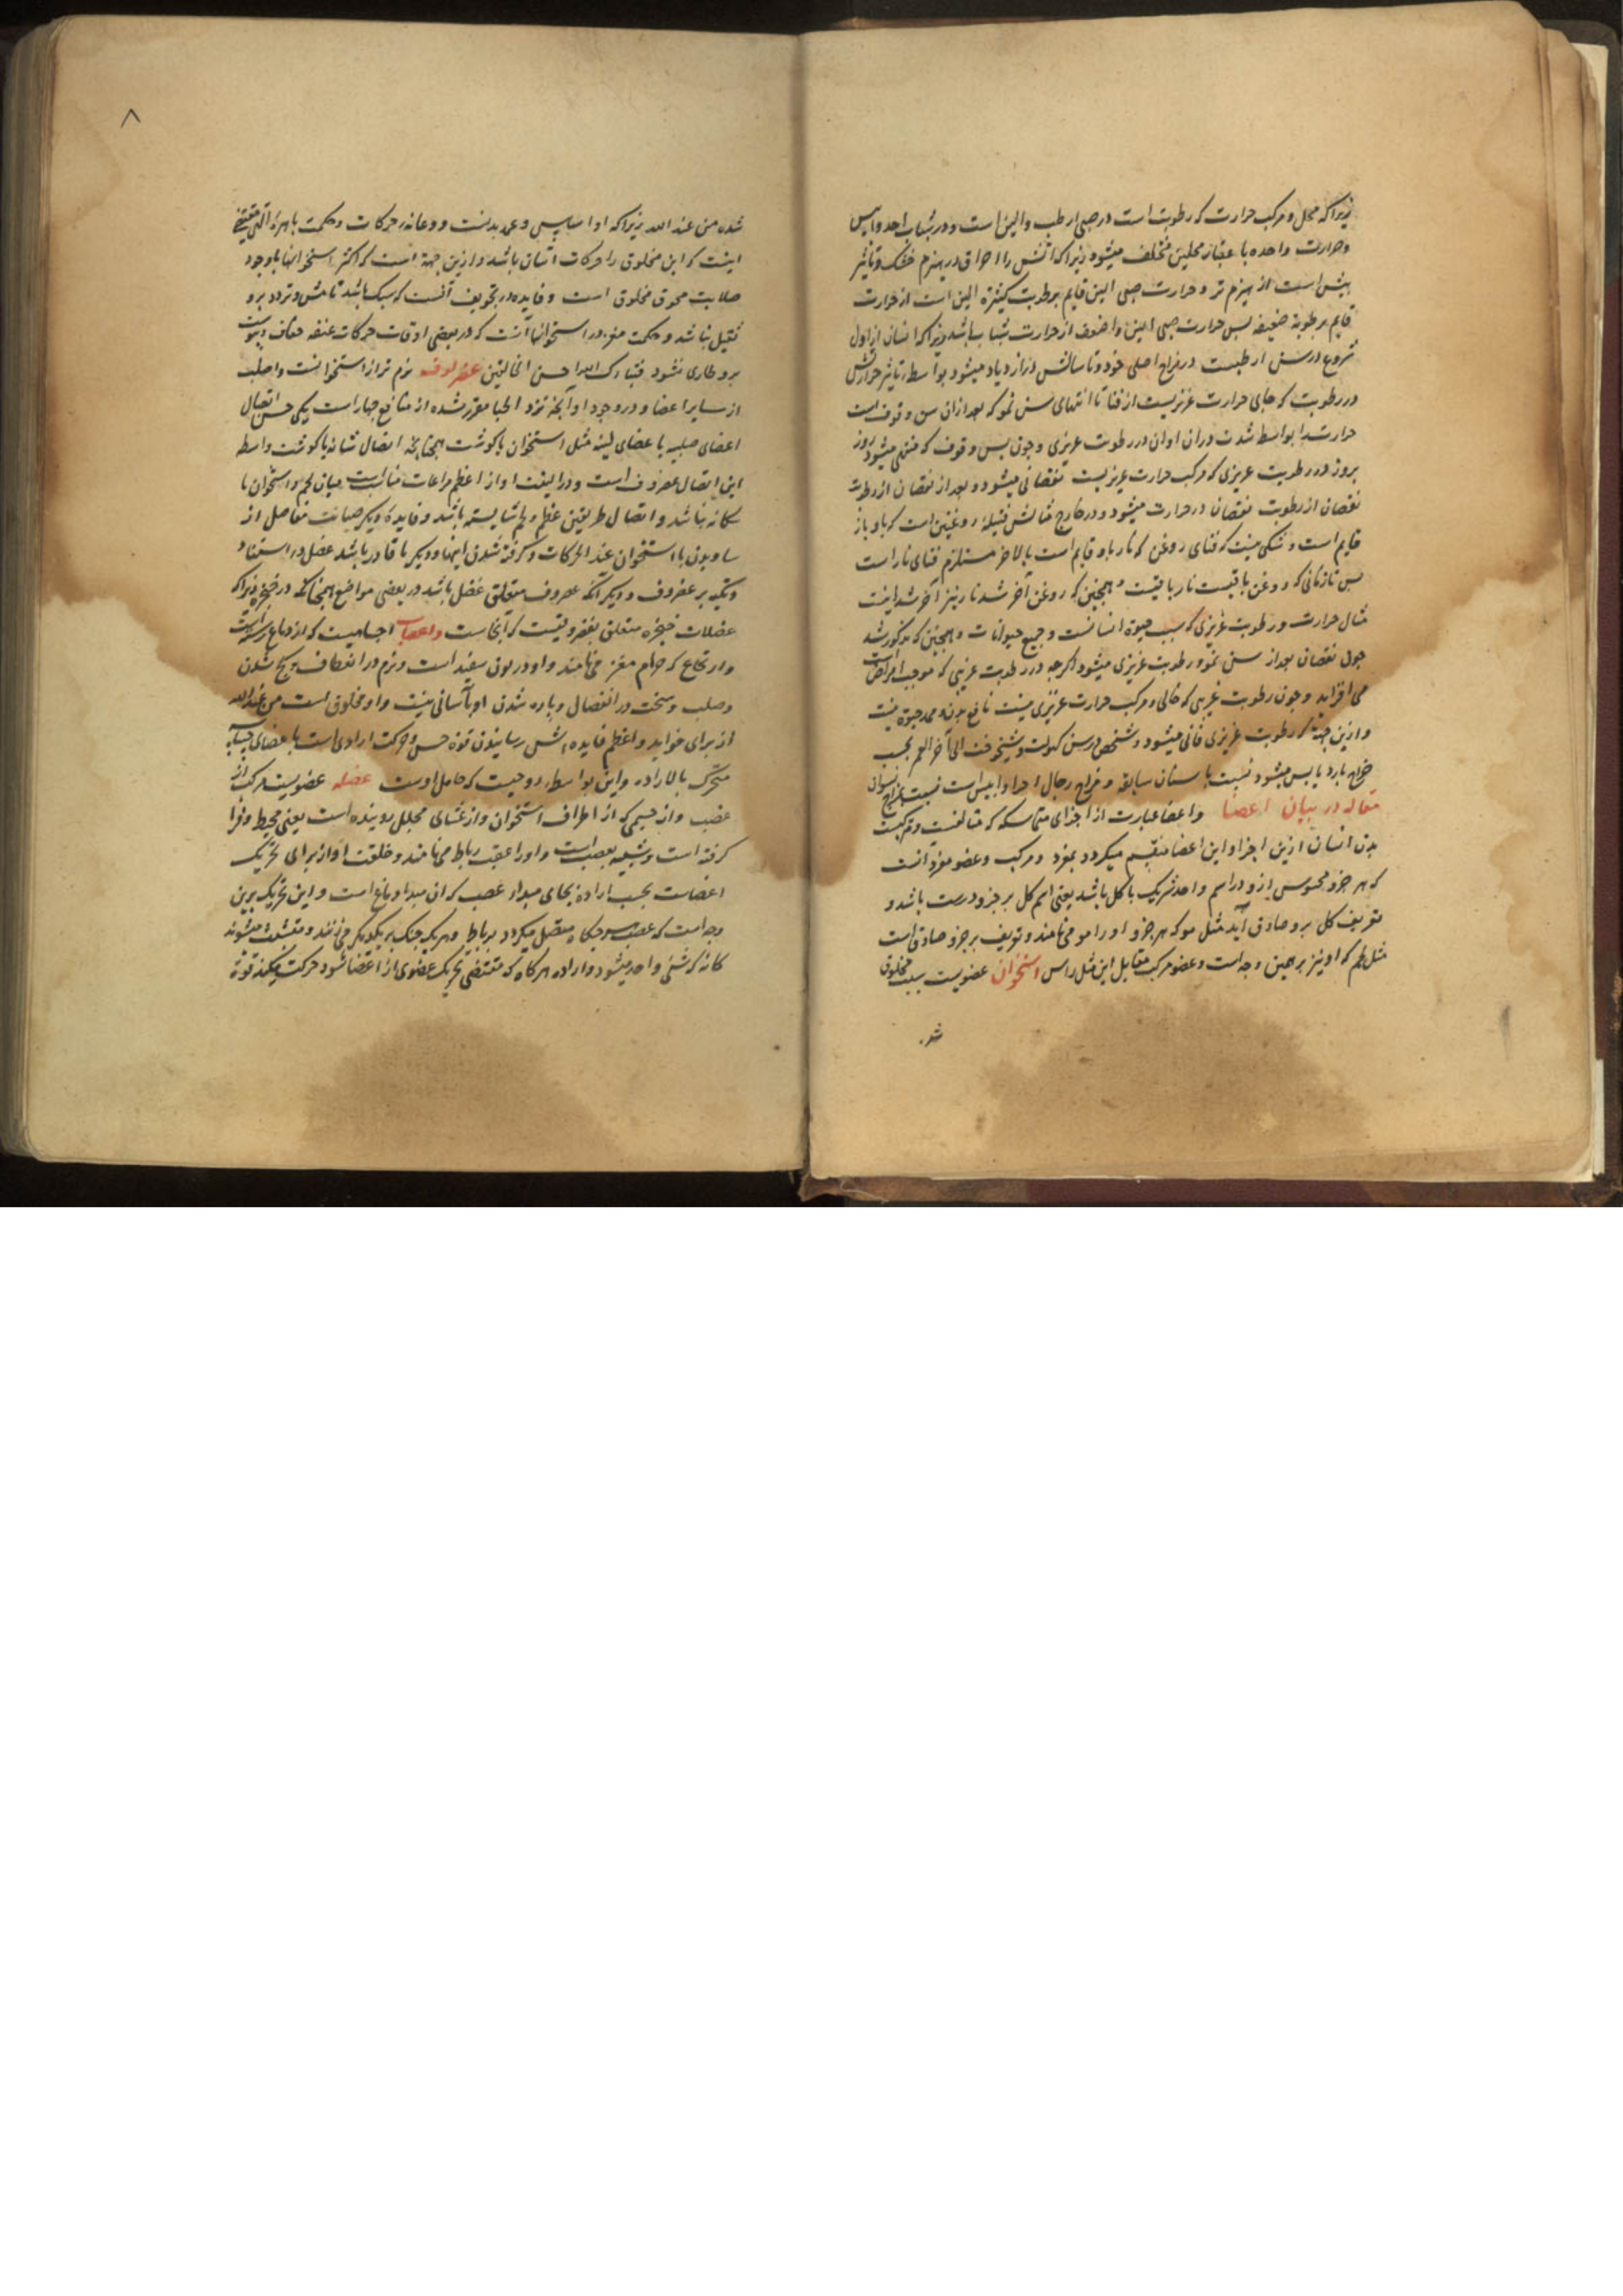 زیرا که محل و مرکب حرارت که رطوبت است در صبی ارطب والین است و در شباب احد و ایبس
و حرارت واحده باعتبار محلین مختلف میشود زیرا که اتش را احراق در هیزم خشک و تاثیر
بیش است از هیزم تر و حرارت صبی الین قایم برطوبت کثیره الین است از حرارت
قایم برطوبة ضعیفه پس حرارت صبی الین و اضعف از حرارت شباب باشد زیرا که انسان از اول
شروع در سن ارطبست در مزاج اصلی خود و تا سالش در ازدیاد میشود بواسطه تاثیر حرارتش
در رطوبت که جای حرارت غریزیست از فنا تا انتهای سن نمو که بعد از ان سن وقوف است
حرارت بواسطه شدت در ان اوان در رطوبت غریزی و چون بسن وقوف که منتهی میشود روز
بروز در رطوبت غریزی که مرکب حرارت غریزیست نقصانی میشود و بعد از نقصان از رطوبت
نقصان از رطوبت نقصان در حرارت میشود و در خارج مثالش فتیله روغنین است که باو نار
قایم است و شکی نیست که فنای روغن که نار باو قایم است بالاخر مستلزم فنای نار است
پس تا زمانی که روغن باقیست نار باقیست و همچنین که روغن آخر شد نار نیز آخر شد اینست
مثال حرارت و رطوبت غریزی که سبب حیوة انسانست و جمیع حیوانات و همچنین که مذکور شد
چون نقصان بعد از سن نمو و رطوبت غریزی میشود اگرچه در رطوبت غریبی که موجب امراض است
می افزاید و چون رطوبت غریبی که خالی و مرکب حرارت غریزی نیست نافع بدن و ممد حیوة نیست
و ازین جهة که رطوبت غریزی فانی میشود و شخص در سن کهولت و شیخوخت الی آخر العمر بحسب
مزاج بارد یابس میشود نسبت باسنان سابقه و مزاج رجال احر و ایبس است نسبت بمزاج نسوانی
مقاله در بیان اعضا و اعضا عبارت از اجزای متماسکه که متالفست و ترکیب
بدن انسان ازین اجزا و این اعضا منقسم میگردد بمفرد و مرکب و عضو مفرد آنست
که هر جزو محسوس ازو در اسم و احد شریک با کل باشد یعنی اسم کل بر جزو درست باشد و
تعریف کل برو صادق آید مثل مو که هر جزو او را مو می نامند و تعریف بر جزو صادق است
مثل لحم که او نیز برهمین وجه است و عضو مرکب مقابل این مثل راس استخوان عضویست صلب مخلوق
شد.
۸
شده من عند الله زیرا که او اساس و عمد بدنست و دعامه حرکات و حکمت باهره الهی مقتضی
اینست که این مخلوق را حرکات آسان باشد و ازین جهة است که اکثر استخوانها با وجود
صلابت مجوف مخلوق است و فایده در تجویف آنست که سبک باشد تا مشی و تردد برو
ثقیل نباشد و حکمت مغز در استخوانها آنست که در بعضی اوقات حرکات عنیفه جفاف و یبوست
برو طاری نشود فتبارک الله احسن الخالقین غضروف نرم تر از استخوانست و اصلب
از سایر اعضا و در وجود او آنچه نزد اطبا مقرر شده از منافع چهار است یکی حسن اتصال
اعضای صلبه با عضای لینه مثل استخوان با گوشت همچنانچه اتصال شانه با گوشت واسطه
این اتصال غضروف است و در الیفت او از اعظم مراعات مناسبت میان لحم و استخوان تا
بیکانه نباشد و اتصال طریقین عظم و لحم شایسته باشد و فایده دیگر صیانت مفاصل از
ساویدن با استخوان عند الحرکات و کرفته شدن اینها و دیگر تا قادر باشد عضل در استناد
و تکیه بر غضروف و دیگر آنکه غضروف متعلق عضل باشد در بعضی مواضع همچنانکه در حنجره زیرا که
عضلات حنجره متعلق بغضروفیست که آنجاست و اعصاب اجسامیست که از دماغ رسته است
و از نخاع که حرام مغز می نامند و او در لون سفید است و نرم در انعطاف و کج شدن
و صلب و سخت در انفصال و پاره شدن او بآسانی نیست و او مخلوق است من عند الله
از برای فواید و اعظم فایده اش رسانیدن قوة حس و حرکت ارادی است باعضای حساسه
متحرک بالاراده و این بواسطه روحیست که حامل اوست عضله عضویست مرکب از
عصب و از جسمی که از اطراف استخوان و از غشای مجلل روینده است یعنی محیط و فرا
کرفته است و شبیه بعصب است و او را عقب و رباط می نامند و خلقت او از برای تحریک
اعضاست بحسب اراده بجای مبداء عصب که ان مبدا دماغ است و این تحریک برین
وجه است که عصب هر جکاه متصل میکردد برباط و هر یک چنک بر یکدیگر می زنند و متشبث میشوند
کانه که شئی واحد میشود و اراده هرکاه که مقتضی تحریک عضوی از اعضا شود حرکت میکند قوة